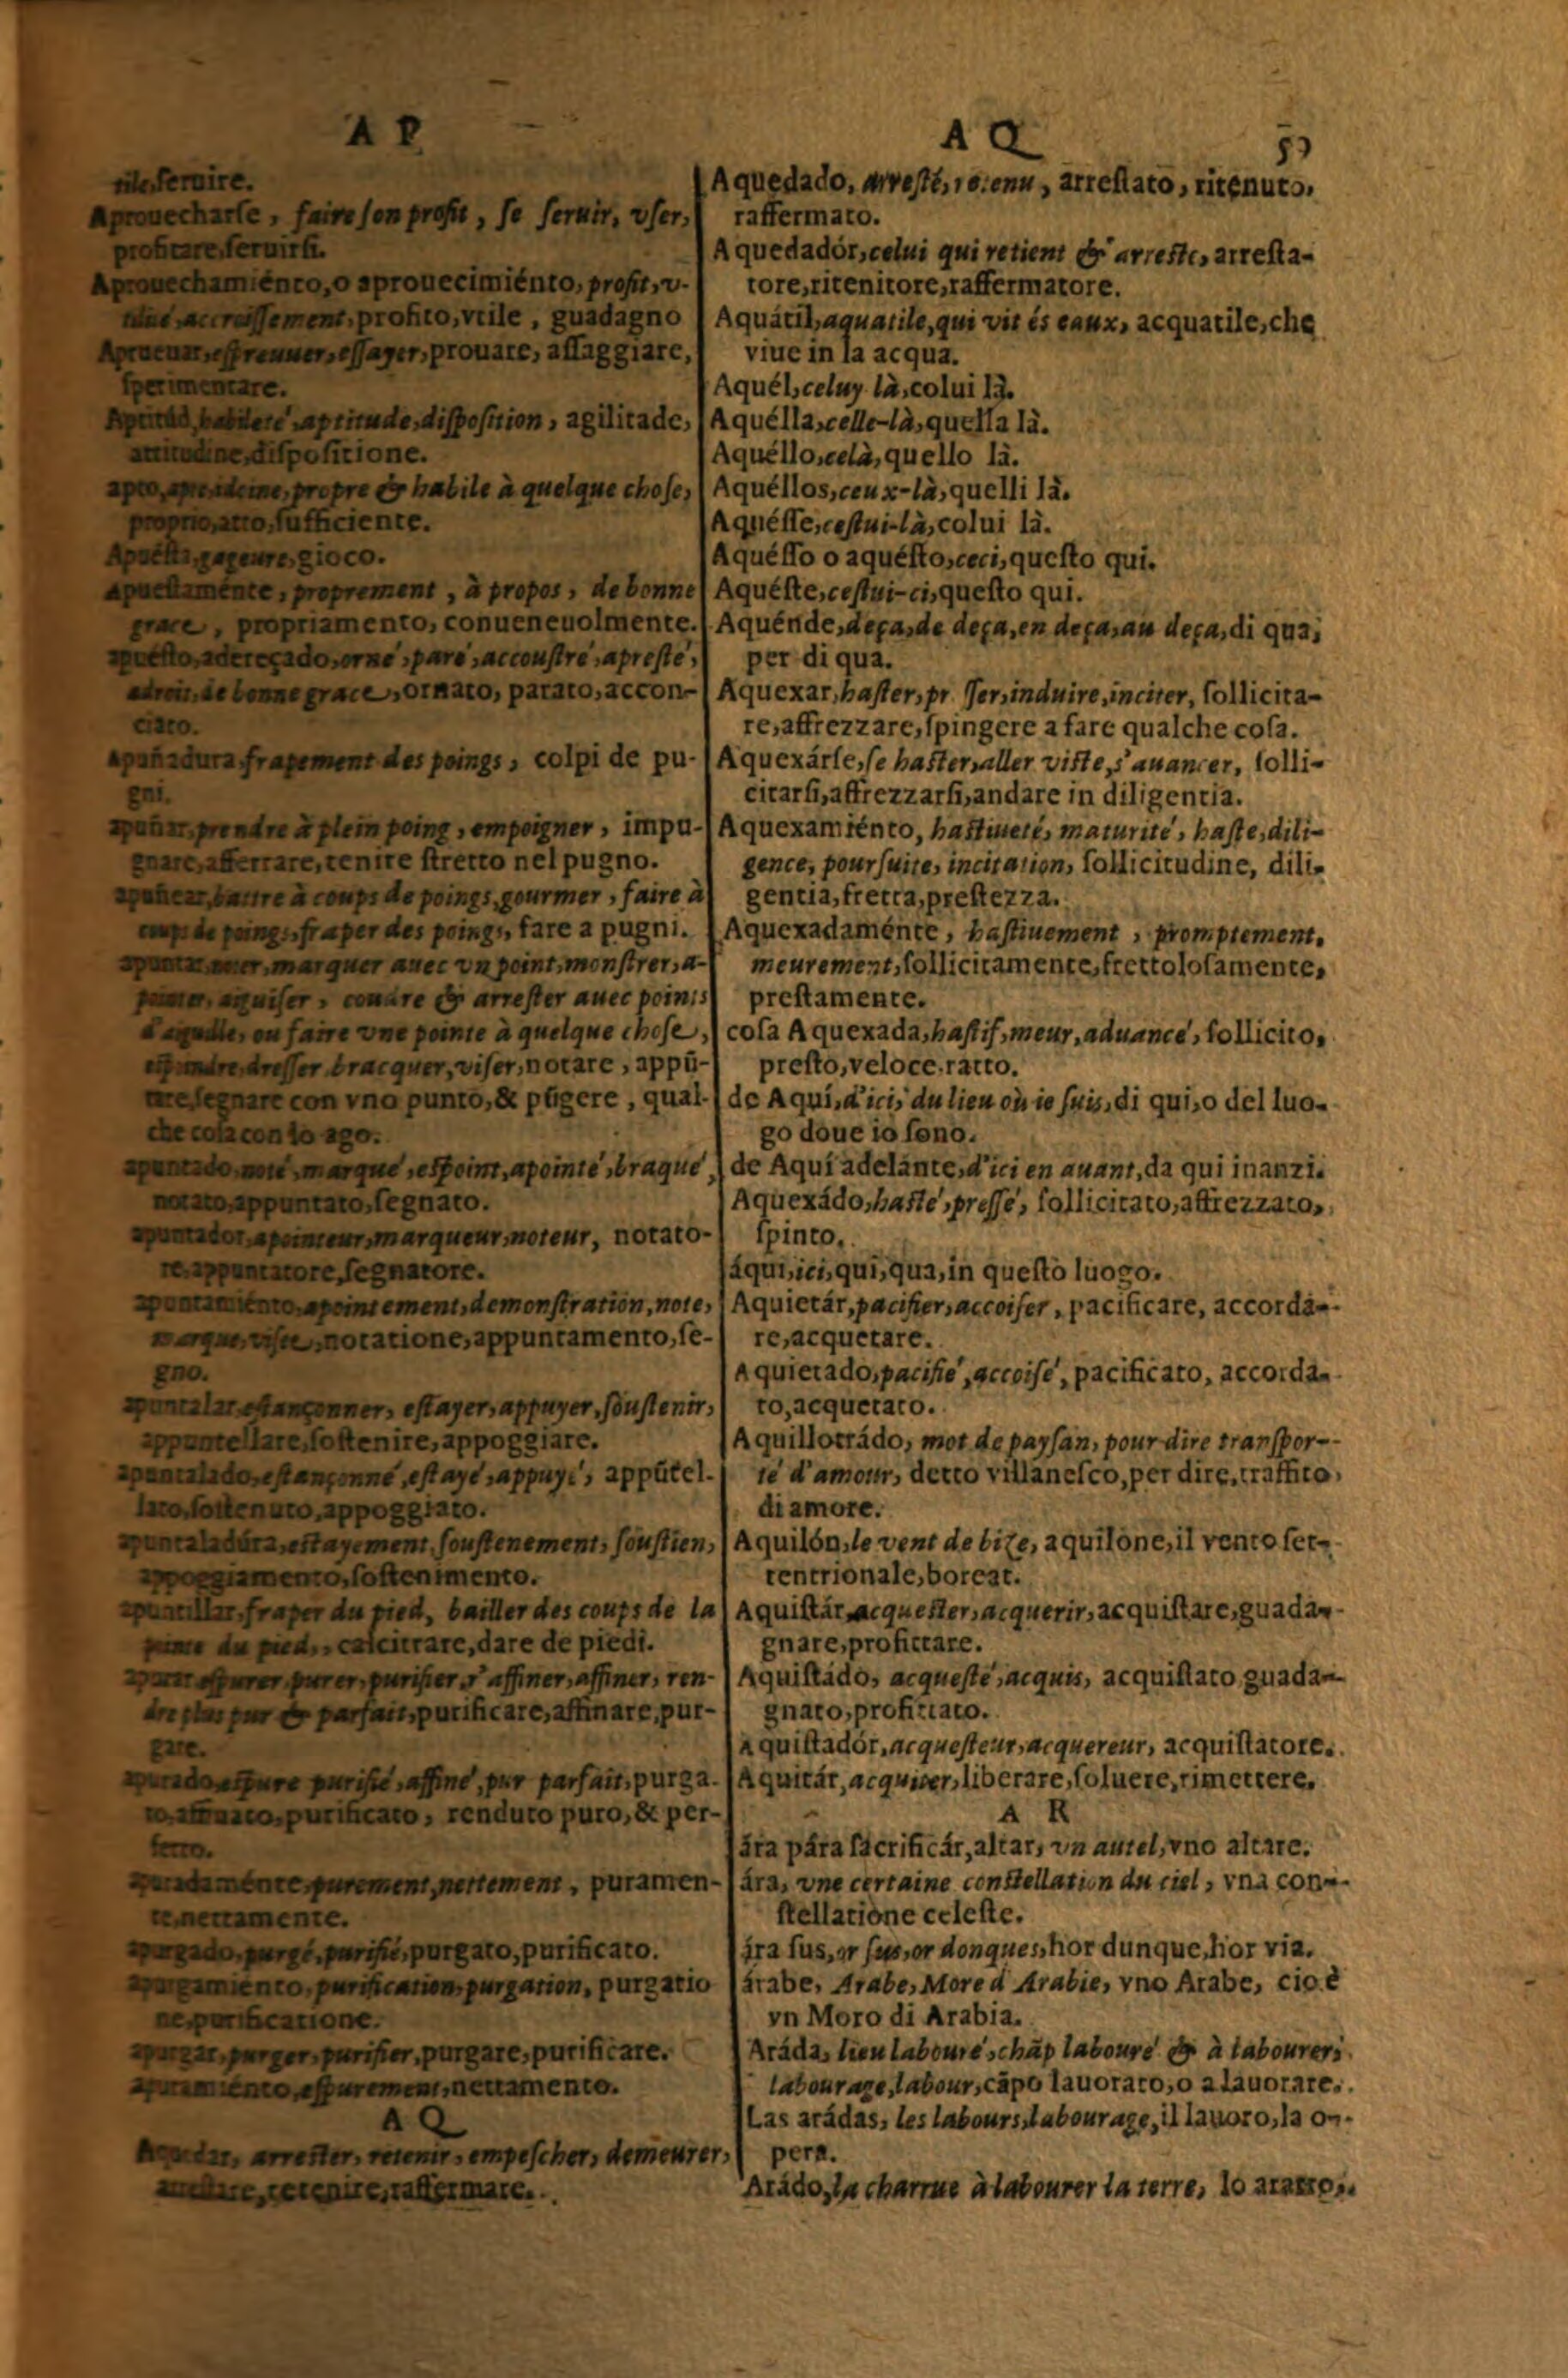 A P
tile, seruire.
Aprouecharse, faire son profit, se seruir, vser,
profitare, seruirsi.
Aprouechamiénto, o aprouecimiénto, profit, v-
tilité, accroissement, profito, vtile, guadagno
Aprueuar, esprouuer, essayer, prouare, assaggiare,
sperimentare.
Aptitúd, habileté, aptitude, disposition, agilitade,
attitudine, dispositione.
apto, propre & habile à quelque chose,
proprio, atto, sufficiente.
Apuésta, gageure, gioco.
Apuestaménte, proprement, à propos, de bonne
grace, propriamento, conueneuolmente.
apuésto, adereçado, orné, paré, accoustré, apresté,
adroit, de bonne grace, ornato, parato, accon-
ciato.
Apuñadura, frapement des poings, colpi de pu-
gni.
apuñar, prendre à plein poing, empoigner, impu-
gnare, afferrare, tenire stretto nel pugno.
apuñear, battre à coups de poings, gourmer, faire à
coups de poings, fraper des poings, fare a pugni.
apuntar, noter, marquer auec vn point, monstrer, a-
pointer, aiguiser, coudre & arrester auec points
d'aguille, ou faire vne pointe à quelque chose,
dresser bracquer, viser, notare, appũ-
tare, segnare con vno punto, & pũgere, qual-
che cosa con lo ago.
apuntado, noté, marqué, espoint, apointé, braqué,
notato, appuntato, segnato.
apuntador, apointeur, marqueur, noteur, notato-
re, appuntatore, segnatore.
apuntamiénto, apointement, demonstration, note,
marque, visée, notatione, appuntamento, se-
gno.
apuntalar, estançonner, estayer, appuyer, soustenir,
appuntellare, sostenire, appoggiare.
apuntalado, estançonné, estayé, appuyé, appũtel-
lato, sostenuto, appoggiato.
apuntaladúra, estayement, soustenement, soustien,
appoggiamento, sostenimento.
apuntillar, fraper du pied, bailler des coups de la
pointe du pied, calcitrare, dare de piedi.
apurar, espurer, purer, purifier, r'affiner, affiner, ren-
dre plus pur & parfait, purificare, affinare, pur-
gare.
apurado, espuré purifié, affiné, pur parfait, purga-
to, affinato, purificato, renduto puro, & per-
fetto.
apuradaménte, purement, nettement, puramen-
te, nettamente.
apurgado, purgé, purifié, purgato, purificato.
apurgamiento, purification, purgation, purgatio
ne, purificatione.
apurgar, purger, purifier, purgare, purificare.
apuramiénto, espurement, nettamento.
A Q
Aquedar, arrester, retenir, empescher, demeurer,
arrestare, retenire, raffermare.
A Q
Aquedado, arresté, retenu, arrestato, ritenuto,
raffermato.
Aquedadór, celui qui retient & arreste, arresta-
tore, ritenitore, raffermatore.
Aquátil, aquatile, qui vit és eaux, acquatile, che
viue in la acqua.
Aquél, celuy là, colui là.
Aquélla, celle-là, quella là.
Aquéllo, celà, quello là.
Aquéllos, ceux-là, quelli là.
Aquésse, cestui-là, colui là.
Aquésso o aquésto, ceci, questo qui.
Aquéste, cestui-ci, questo qui.
Aquénde, deça, de deça, en deça, au deça, di qua,
per di qua.
Aquexar, haster, presser, induire, inciter, sollicita-
re, affrezzare, spingere a fare qualche cosa.
Aquexárse, se haster, aller viste, s'auancer, solli-
citarsi, affrezzarsi, andare in diligentia.
Aquexamiénto, hastiueté, maturité, haste, dili-
gence, poursuite, incitation, sollicitudine, dili-
gentia, fretta, prestezza.
Aquexadaménte, hastiuement, promptement,
meurement, sollicitamente, frettolosamente,
prestamente.
cosa Aquexada, hastif, meur, aduancé, sollicito,
presto, veloce, ratto.
de Aquí, d'ici, du lieu où ie suis, di qui, o del luo-
go doue io sono.
de Aquí adelánte, d'ici en auant, da qui inanzi.
Aquexádo, hasté, pressé, sollicitato, affrezzato,
spinto.
áqui, ici, qui, qua, in questo luogo.
Aquietár, pacifier, accoiser, pacificare, accorda-
re, acquetare.
Aquietado, pacifié, accoisé, pacificato, accorda-
to, acquetato.
Aquillotrádo, mot de paysan, pour dire transpor-
té d'amour, detto villanesco, per dire, traffito
di amore.
Aquilón, le vent de bize, aquilone, il vento set-
tentrionale, boreat.
Aquistár, acquester, acquerir, acquistare, guada-
gnare, profittare.
Aquistádo, acquesté, acquis, acquistato guada-
gnato, profittato.
Aquistadór, acquesteur, acquereur, acquistatore.
Aquitár, acquiter, liberare, soluere, rimettere.
A R
ára pára sacrificár, altar, vn autel, vno altare.
ára, vne certaine constellation du ciel, vna con-
stellatione celeste.
ára sus, or sus, or donques, hor dunque, hor via.
árabe, Arabe, More d'Arabie, vno Arabe, cio è
vn Moro di Arabia.
Aráda, lieu labouré, chãp labouré & à labourer,
labourage, labour, cãpo lauorato, o a lauorare.
Las arádas, les labours, labourage, il lauoro, la o-
pera.
Arádo, la charrue à labourer la terre, lo aratro,